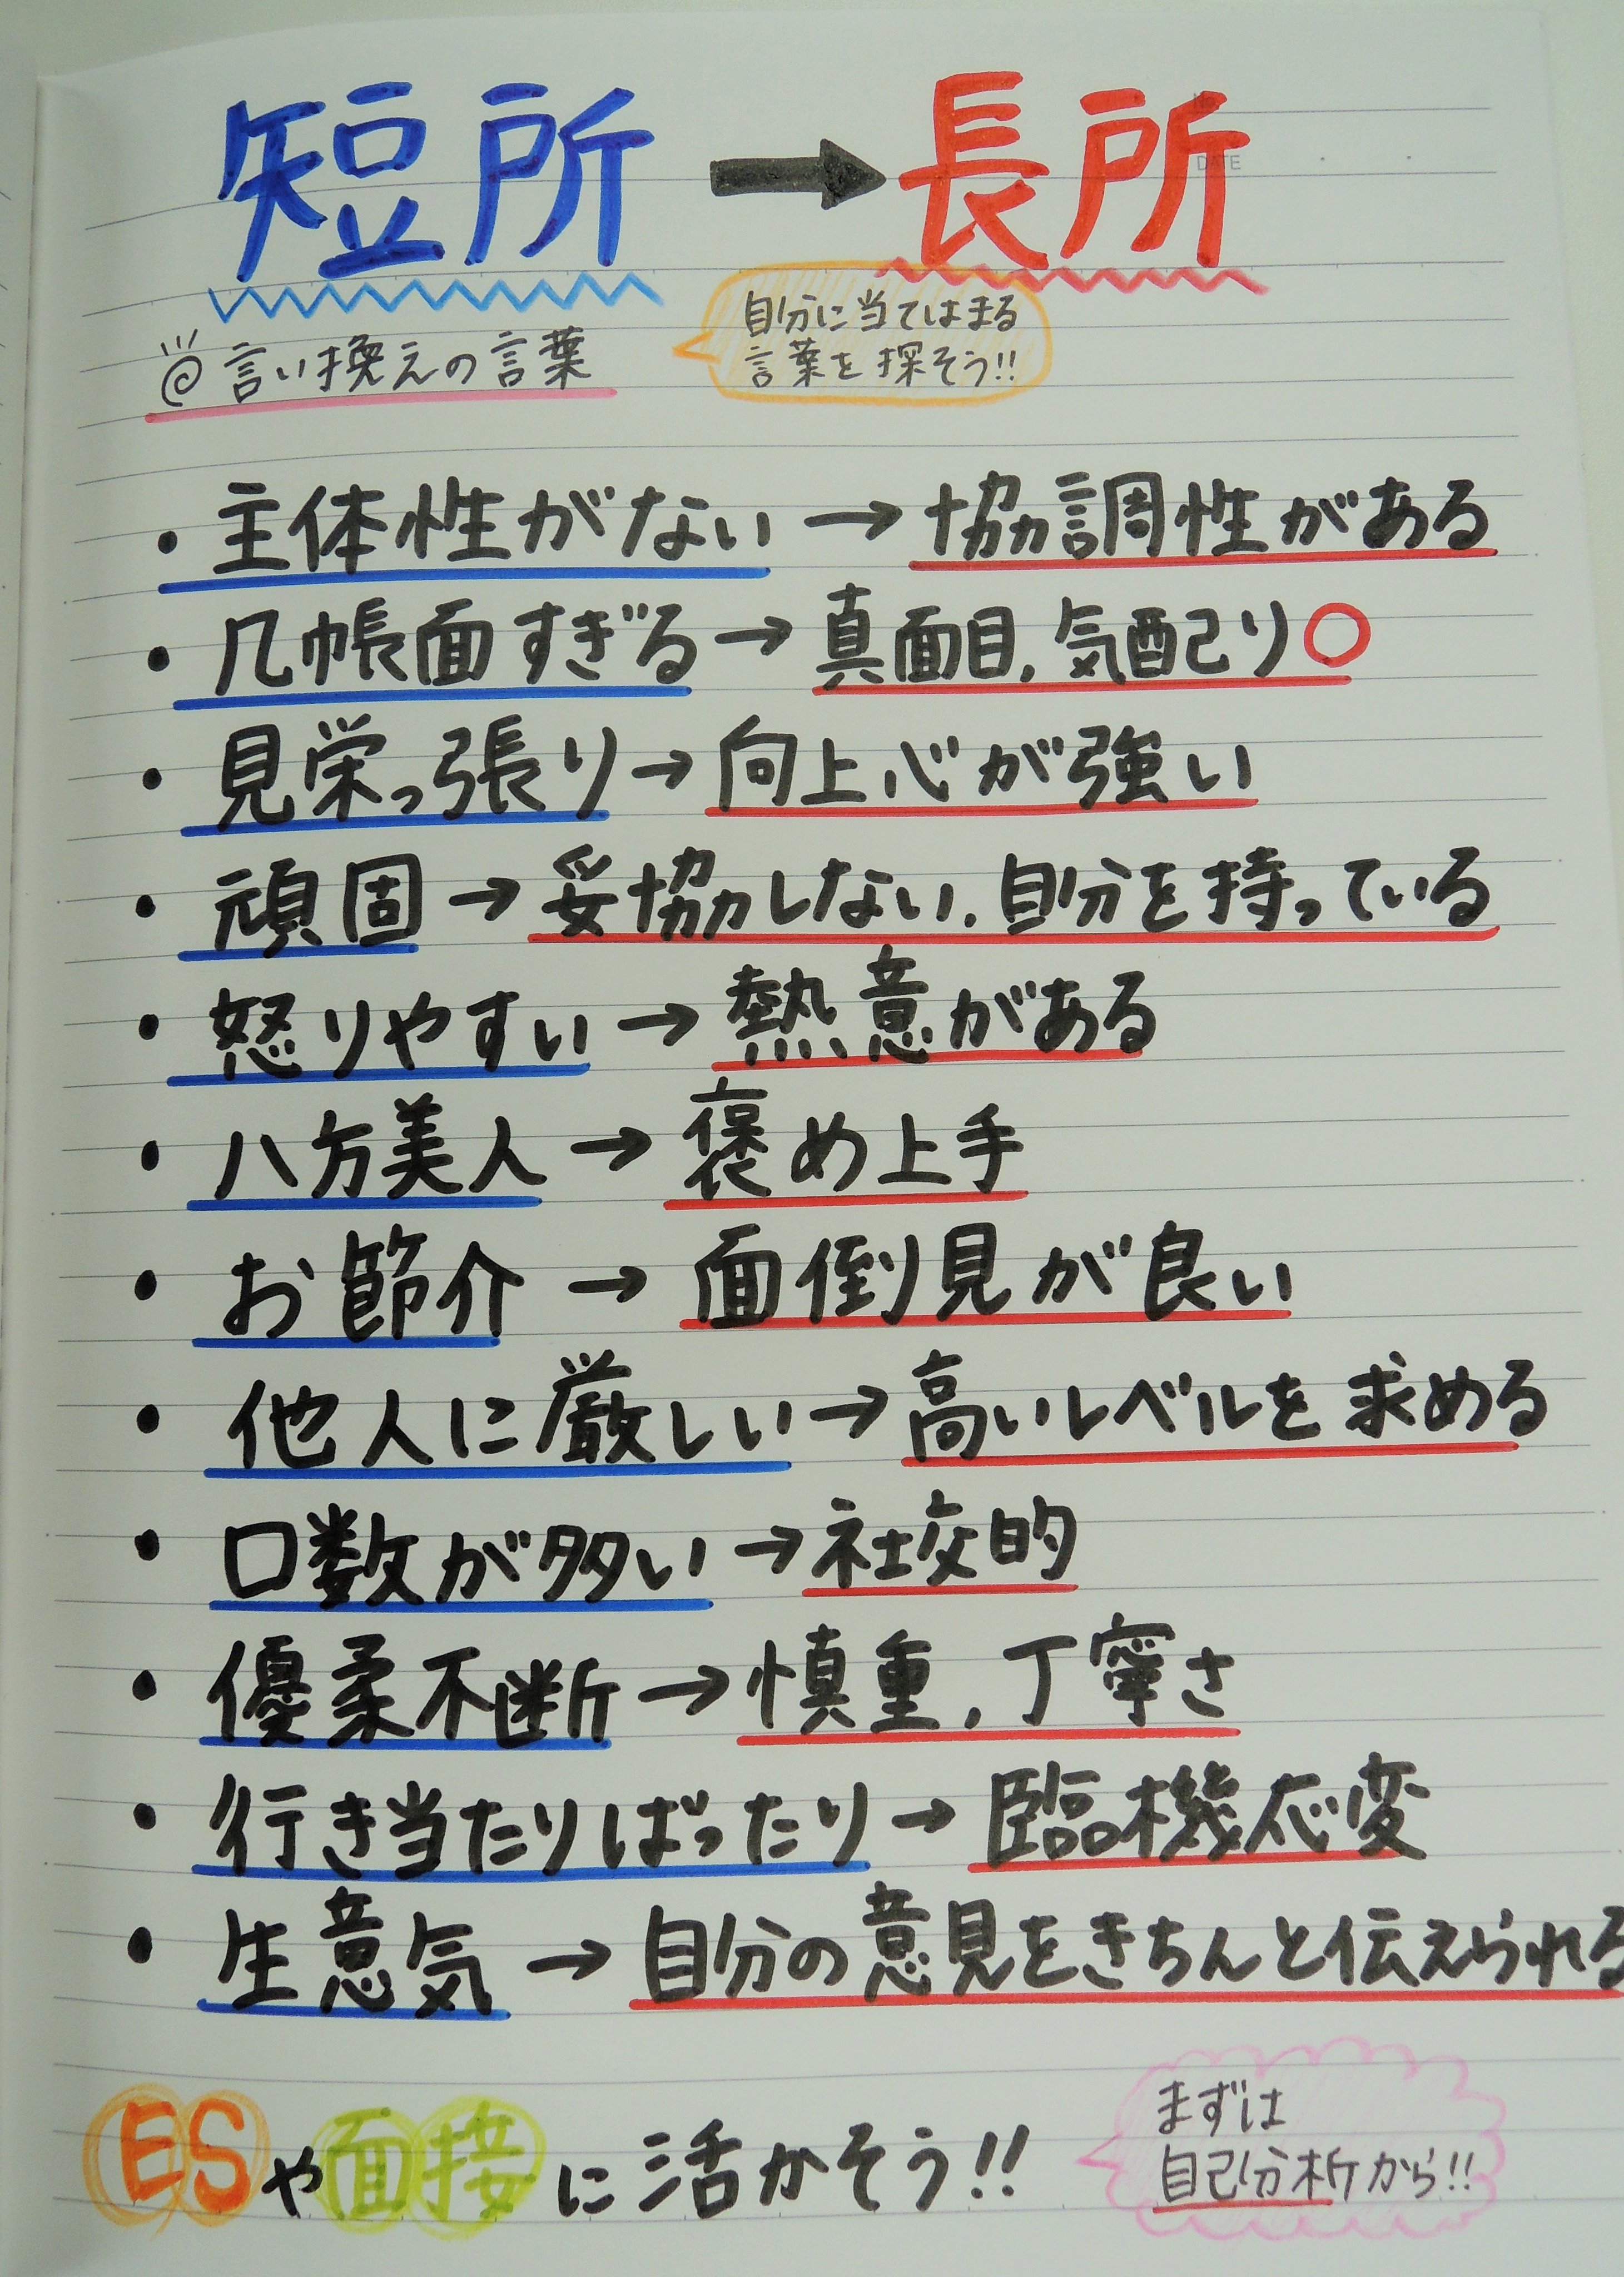 短所→長所
言い換えの言葉
自分に当てはまる
言葉を探そう!!
・主体性がない→協調性がある
・几帳面すぎる→真面目,気配り○
・見栄っ張り→向上心が強い
・頑固→妥協しない,自分を持っている
・怒りやすい→熱意がある
・八方美人→褒め上手
・お節介→面倒見が良い
・他人に厳しい→高いレベルを求める
・口数が多い→社交的
・優柔不断→慎重,丁寧さ
・行き当たりばったり→臨機応変
・生意気→自分の意見をきちんと伝えられる
ESや面接に活かそう!!
まずは
自己分析から!!